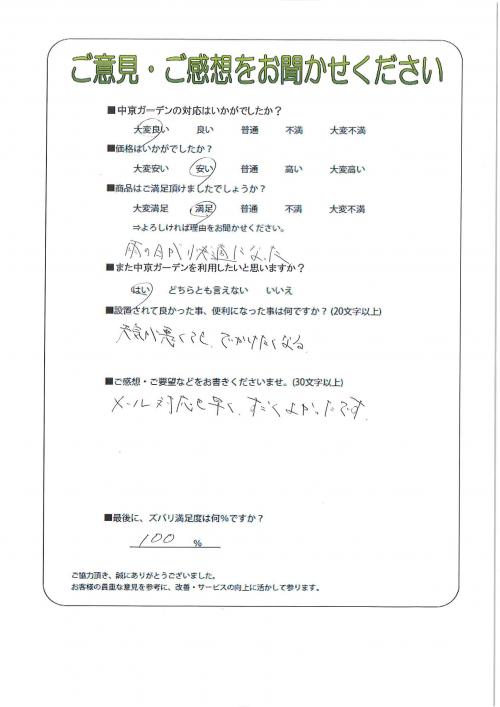 ご意見・ご感想をお聞かせください
■中京ガーデンの対応はいかがでしたか？
大変良い 良い 普通 不満 大変不満
■価格はいかがでしたか？
大変安い 安い 普通 高い 大変高い
■商品はご満足頂けましたでしょうか？
大変満足 満足 普通 不満 大変不満
⇒よろしければ理由をお聞かせください。
雨の日がり快適になった
■また中京ガーデンを利用したいと思いますか？
はい どちらとも言えない いいえ
■設置されて良かった事、便利になった事は何ですか？(20文字以上)
天気が悪くても、でかけたくなる
■ご感想・ご要望などをお書きくださいませ。(30文字以上)
メール対応も早く、すごくよかったです。
■最後に、ズバリ満足度は何％ですか？
100 %
ご協力頂き、誠にありがとうございました。
お客様の貴重な意見を参考に、改善・サービスの向上に活かして参ります。